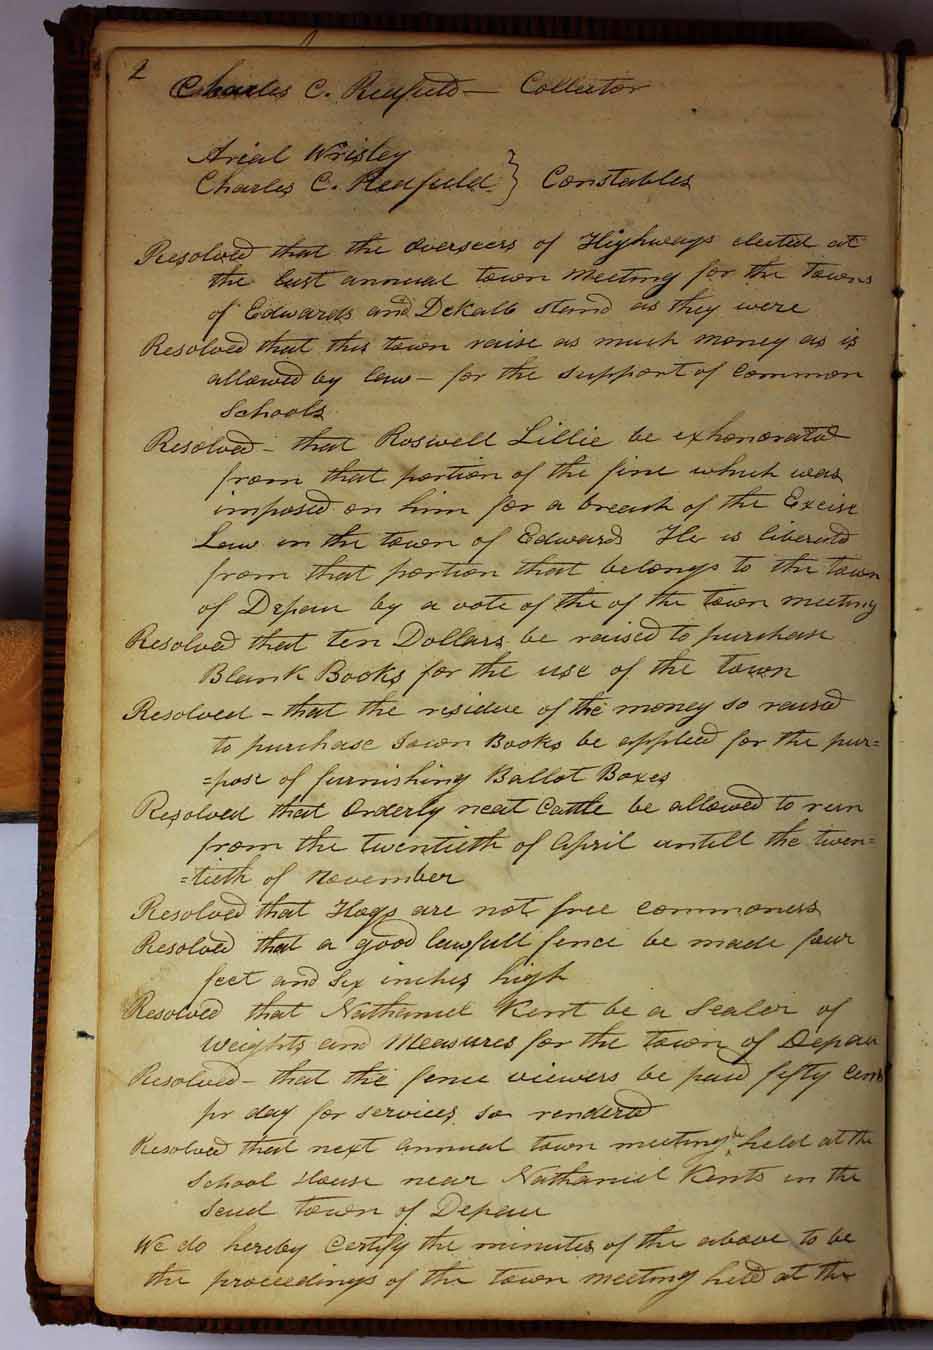 2
Charles C. Redfield — Collector
Arial Wrisley
Charles C. Redfield } Constables
Resolved that the Overseers of Highways elected at
the last annual town meeting for the towns
of Edwards and DeKalb stand as they were
Resolved that this town raise as much money as is
allowed by law - for the support of Common
Schools
Resolved - that Roswell Lillie be exhonorated
from that portion of the fine which was
imposed on him for a breach of the Excise
Law in the town of Edwards He is liberated
from that portion that belongs to the town
of Depau by a vote of the of the town meeting
Resolved that ten Dollars be raised to purchase
Blank Books for the use of the town
Resolved - that the residue of the money so raised
to purchase Town Books be applied for the pur=
=pose of furnishing Ballot Boxes
Resolved that Orderly neat Cattle be allowed to run
from the twentieth of April untill the twen=
=tieth of November
Resolved that Hogs are not free commoners
Resolved that a good lawfull fence be made four
feet and Six inches high
Resolved that Nathaniel Kent be a Sealer of
Weights and Measures for the town of Depau
Resolved - that the fence viewers be paid fifty Cents
pr day for services so rendered
Resolved that next annual town meeting be held at the
School House near Nathaniel Kents in the
Said town of Depau
We do hereby Certify the minutes of the above to be
the proceedings of the town meeting held at the